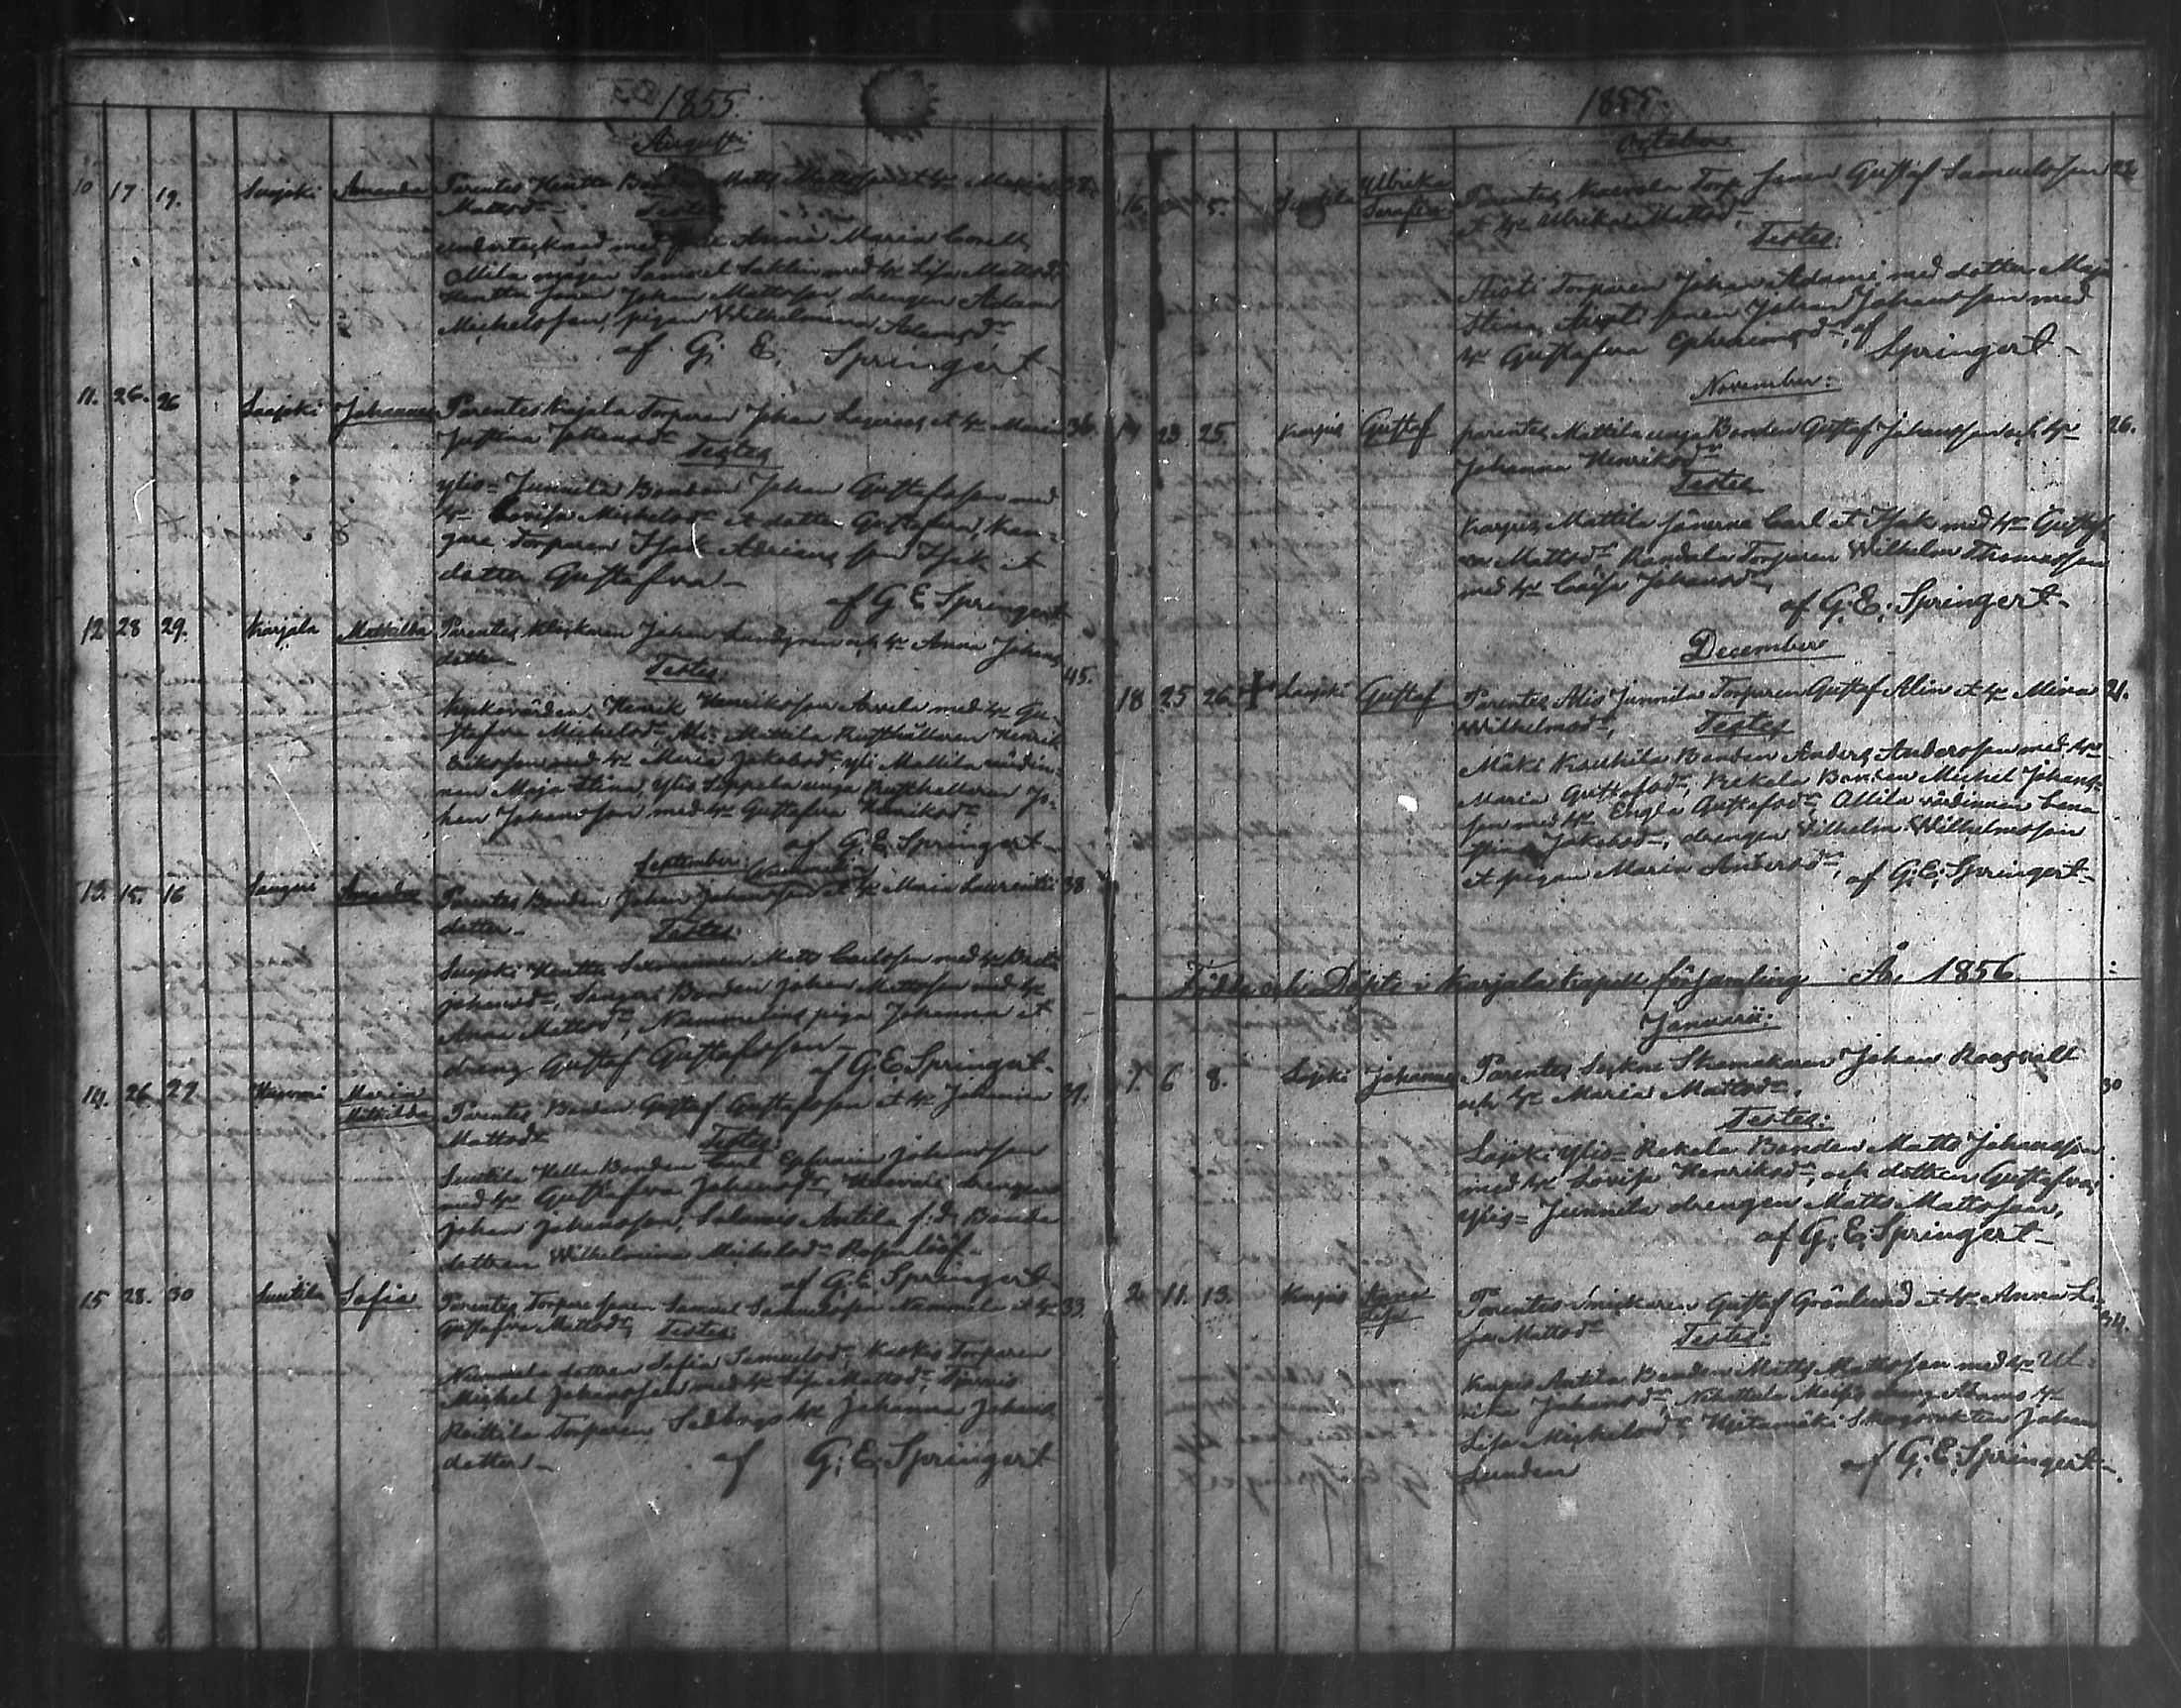 1855.
Augusti
10 17 19. Suojoki Amanda Parentes Hentta Bonden Matts Mattsson et h: Maria 37.
Mattsdr
Testes
undertecknad med fru Anna Maria Corell,
Attila mågen Samuel Saklin med h: Lisa Mattsdr
Hentta sonen Johan Mattsson, drengen Adam
Michelsson, pigan Wilhelmina Adamsdr
af G. E. Springert
11. 26. 26 Laajoki Johannes Parentes Karjala Torparen Johan Lageroos et h: Maria 36.
Justina Johansdr
Testes
Ylis-Junnila Bonden Johan Gustafsson med
h: Lovisa Michelsdr et dotter Gustafva, Kan-
gare Torparen Isak Adrians son Isak et
dotter Gustafva
af G. E. Springert
12. 28 29. Karjala Mathilda Parentes Klockaren Johan Lundgren och h: Anna Johans
dotter 45.
Testes:
Kyrkovärden Henrik Henriksson Arvela med h: Gu-
stafva Michelsdr, Ali-Mattila Rusthållaren Henrik
Eriksson med h: Maria Jakobsdr, Yli Mattila värdin-
nan Maja Stina, Ylis Seppela unga Rusthållaren Jo-
han Johansson med h: Gustafva Henriksdr
af G. E. Springert
September:
13. 15. 16 Saugeri Amanda Parentes Bonden Johan Johansson et h: Maria Laurentii 38
dotter
Testes:
Suojoki Hentta Matts Carlsson med h: Brita
Johansdr, Saugeri Bonden Johan Mattsson med h:
Anna Mattsdr, Nummenius piga Johanna et
dreng Gustaf Gustafsson
af G. E. Springert
14. 26 27 Kuvoni Maria
Mathilda Parentes Bonden Gustaf Gustafsson et h: Johanna 37.
Mattsdr
Testes:
Suutila Kella Bonden Carl Ephraim Johansson
med h: Gustafva Johansdr, drengen
Johan Johansson, Salomis Antila f.d. Bonde
dottren Wilhelmina Michelsdr Rosenlööf
af G. E. Springert
15 28. 30 Suutila Sofia Parentes Torpare sonen Samuel Samuelsson Nummela et h: 33.
Gustafva Mattsdr Testes:
Nummela dottren Sofia Samuelsdr, Torparen
Michel Johansson med h: Lisa Mattsdr,
Torparen Sedbergs h: Johanna Johans
dotter
af G: E. Springert
1855.
October
16. 5. Suutila Ulbrika
Serafina Parentes Torp sonen Gustaf Samuelsson
et h: Ulbrika Mattsdr
Testes:
Torparen Johan Adami med dotter Maja
Stina, sonen Johan Johansson med
h: Gustafva Ephraimsdr, af
Springert
November:
17 23 25. Karjus Gustaf parentes Mattila unga Bonden Gustaf Johansson och h: 26.
Johanna Henriksdr
Testes
Karjus Mattila sönerna Carl et Isak med h: Gustaf-
va Mattsdr, Randala Torparen Wilhelm Thomasson
med h: Caisa Johansdr
af G. E. Springert
December
18 25 26. Laajoki Gustaf Parentes Alis Junnila Torparen Gustaf Alin et h: Mina 21.
Wilhelmsdr Testes
Mäki Kauhila Bonden Anders Andersson med h:
Maria Gustafsdr, Rekola Bonden Michel Johans-
son med h: Engla Gustafsdr, Attila värdinnan Lena
Stina Jakobsdr, drengen Wilhelm Wilhelmsson
et pigan Maria Andersdr,
af G. E. Springert
Födde och Döpte i Karjala Kapell församling År 1856.
Januarii:
1. 6 8. Laajoki Johannes Parentes Sockne Skomakaren Johan Roosvall
och h: Maria Mattsdr, 30
Testes:
Laajoki Ylis-Rekola Bonden Matts Johansson
med h: Lovisa Henriksdr, och dotter Gustafva,
Ylis-Junnila drengen Matts Mattsson,
af G. E. Springert
2 11. 13. Karjus Anna
Lisa Parentes Snickaren Gustaf Grönlund et h: Anna Li-
sa Mattsdr 34.
Testes:
Karjus Antila Bonden Matts Mattsson med h: Ul-
rika Johansdr, dreng h:
Lisa Michelsdr, Skogsvaktaren Johan
Lunden
af G. E. Springert